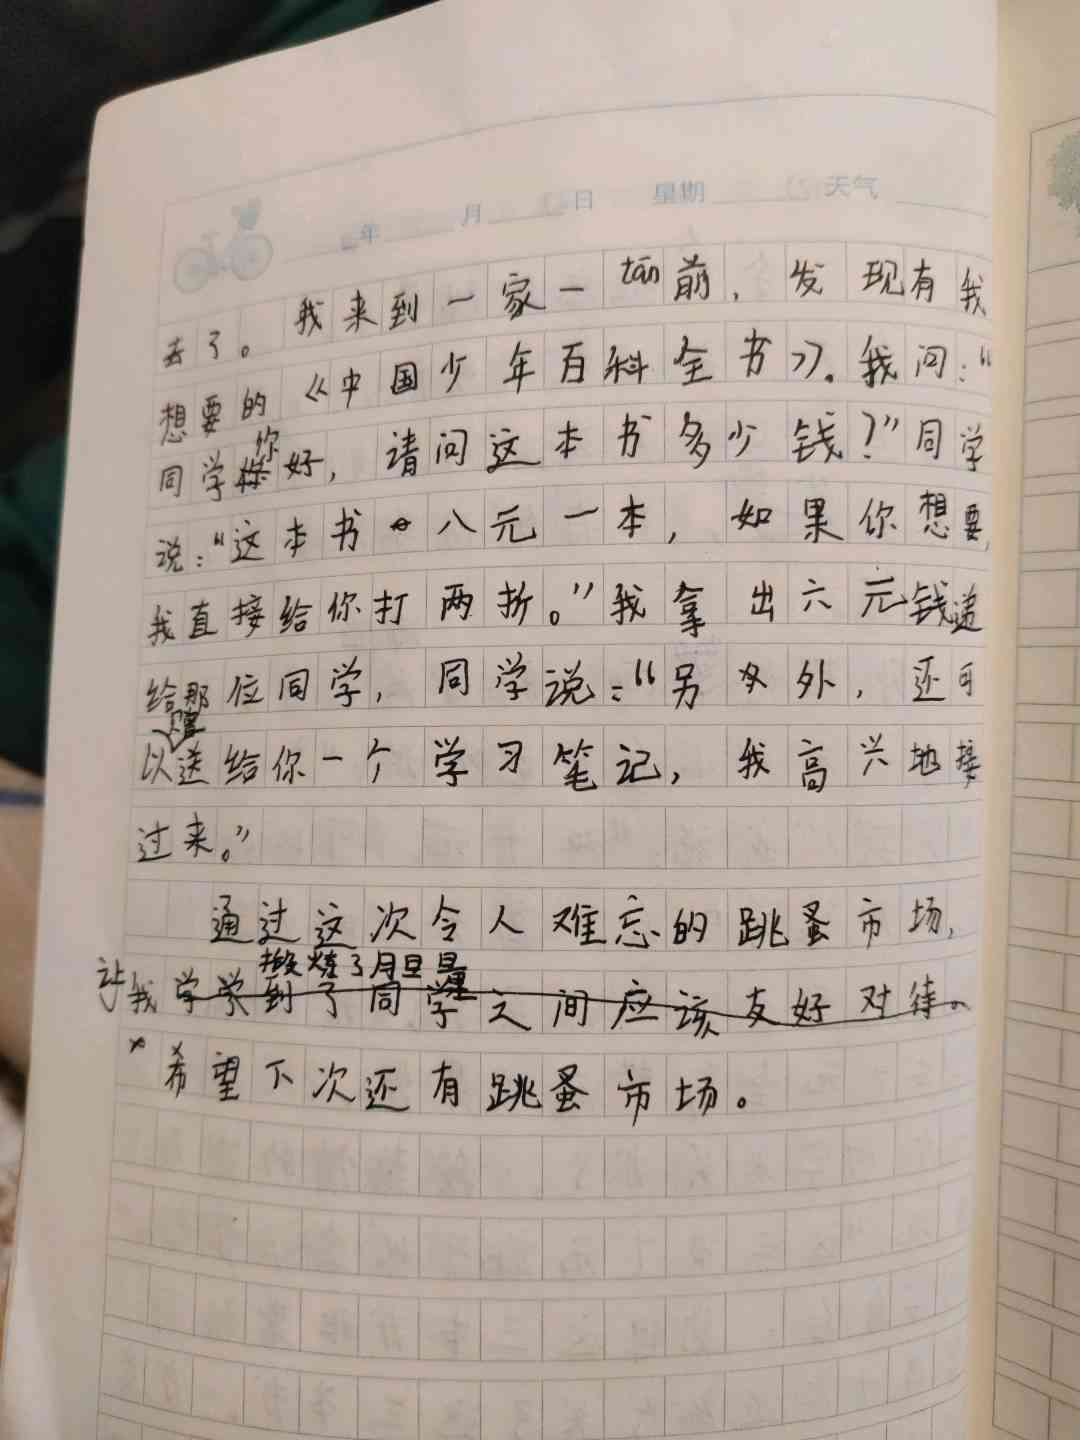 年 月 日 星期 天气
去了。我来到一家一tān前，发现有我
想要的《中国少年百科全书》。我问：“
同学你好，请问这本书多少钱？”同学
说：“这本书八元一本，如果你想要，
我直接给你打两折。”我拿出六元钱递
给那位同学，同学说：“另外，还可
以赠送给你一个学习笔记，我高兴地接
过来。”
通过这次令人难忘的跳蚤市场，
锻炼了胆量
让我学学到了同学之间应该友好对待。
希望下次还有跳蚤市场。